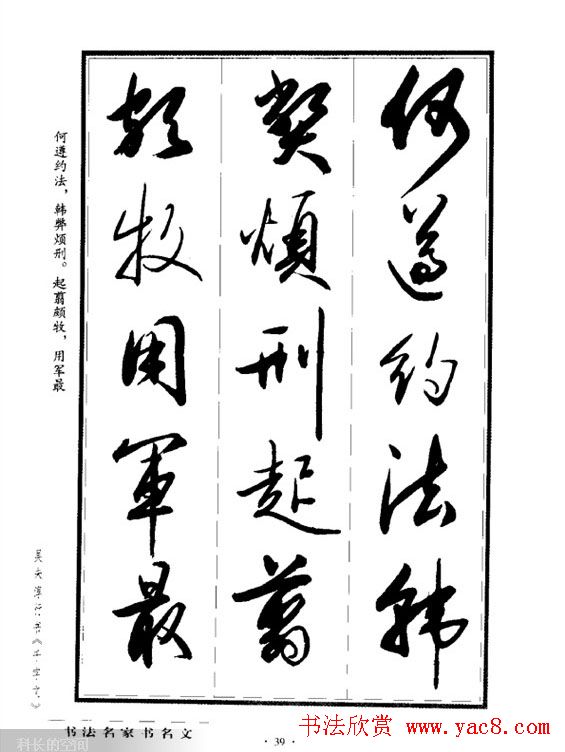 何遵约法韩
弊烦刑起翦
颇牧用軍最
何遵约法，韩弊烦刑。起翦颇牧，用军最
行书《千字文》
书法名家书名文
科长的空间
· 39 ·
书法欣赏 www.yac8.com